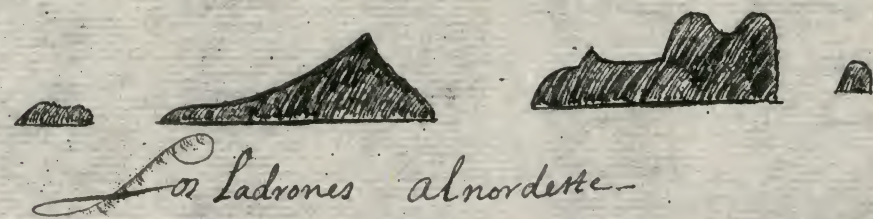 Los Ladrones alnordeste